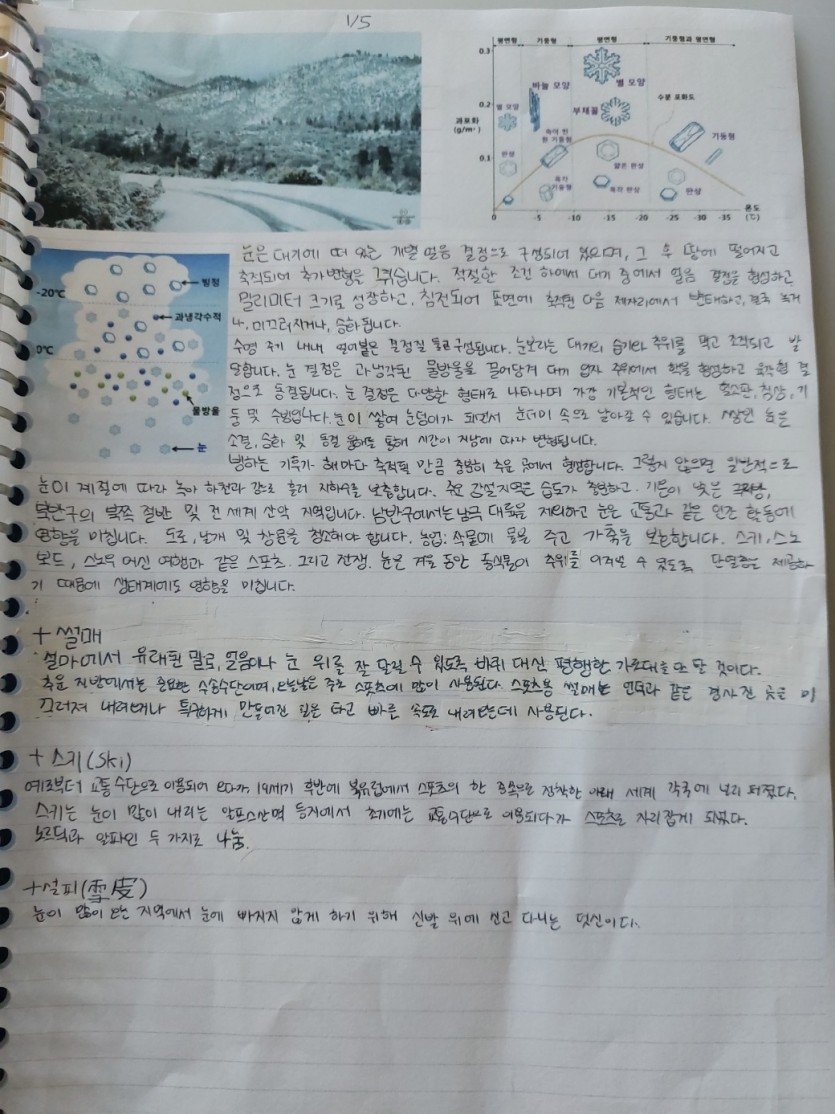 1/5
평면형 기둥형 평면형 기둥형과 평면형
0.3
0.2
0.1
0
과포화
(g/m³)
별 모양
바늘 모양
별 모양
부채꼴
수분 포화도
속이 빈
기둥형
기둥형
판상
얇은 판상
육각
기둥형
육각 판상
판상
-5 -10 -15 -20 -25 -30 -35
온도
(℃)
-20℃
빙정
과냉각수적
0℃
물방울
눈
눈은 대기에 떠 있는 개별 얼음 결정으로 구성되어 있으며, 그 후 땅에 떨어지고
축적되어 추가변형을 겪습니다. 적절한 조건 하에서 대기 중에서 얼음 결정을 형성하고
밀리미터 크기로 성장하고, 침전되어 표면에 축적된 다음 제자리에서 변태하고, 결국 녹거
나, 미끄러지거나, 승화됩니다.
수명 주기 내내 얼어붙은 결정질 물로 구성됩니다. 눈보라는 대기의 습기와 추위를 먹고 조직되고 발
달합니다. 눈 결정은 과냉각된 물방울을 끌어당겨 대기 입자 주위에서 핵을 형성하고 육각형 결
정으로 동결됩니다. 눈 결정은 다양한 형태로 나타나며 가장 기본적인 형태는 혈소판, 침상, 기
둥 및 수빙입니다. 눈이 쌓여 눈덩이가 되면서 눈더미 속으로 날아갈 수 있습니다. 쌓인 눈은
소결, 승화 및 동결 융해를 통해 시간이 지남에 따라 변형됩니다.
빙하는 기후가 해마다 축적될 만큼 충분히 추운 곳에서 형성합니다. 그렇지 않으면 일반적으로
눈이 계절에 따라 녹아 하천과 강으로 흘러 지하수를 보충합니다. 주요 강설지역은 습도가 충분하고, 기온이 낮은 극지방,
북반구의 북쪽 절반 및 전 세계 산악 지역입니다. 남반구에서는 남극 대륙을 제외하고 눈은 교통과 같은 인간 활동에
영향을 미칩니다. 도로, 날개 및 창문을 청소해야 합니다. 농업: 작물에 물을 주고 가축을 보호합니다. 스키, 스노
보드, 스노우 머신 여행과 같은 스포츠. 그리고 전쟁. 눈은 겨울 동안 동식물이 추위를 이겨낼 수 있도록 단열층을 제공하
기 때문에 생태계에도 영향을 미칩니다.
+ 썰매
설마에서 유래된 말로, 얼음이나 눈 위를 잘 달릴 수 있도록 바퀴 대신 평행한 가로대를 단 것이다.
추운 지방에서는 중요한 수송수단이며, 오늘날은 주로 스포츠에 많이 사용된다. 스포츠용 썰매는 언덕과 같은 경사진 곳을 미
끄러져 내려가거나 특수하게 만들어진 길을 타고 빠른 속도로 내려오는데 사용된다.
+ 스키(Ski)
예로부터 교통수단으로 이용되어 오다가, 19세기 후반에 북유럽에서 스포츠의 한 종목으로 정착한 이래 세계 각국에 널리 퍼졌다.
스키는 눈이 많이 내리는 알프스산맥 등지에서 초기에는 교통수단으로 이용되다가 스포츠로 자리잡게 되었다.
노르딕과 알파인 두 가지로 나눔.
+설피(雪皮)
눈이 많이 오는 지역에서 눈에 빠지지 않게 하기 위해 신발 위에 신고 다니는 덧신이다.